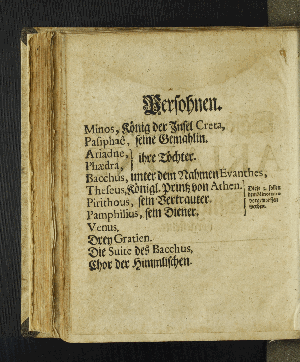 Personen.
Minos, König der Insel Creta,
Pasiphaë, seine Gemahlin.
Ariadne,
Phædra, } ihre Töchter.
Bacchus, unter dem Nahmen Evanthes,
Theseus, Königl. Printz von Athen.
Pirithous, sein Vertrauter.
Pamphilius, sein Diener.
Diese 3. sollen
dem Minotauro
vorgeworffen
werden.
Venus,
Drey Gratien.
Die Suite des Bacchus,
Chor der Himmlischen.